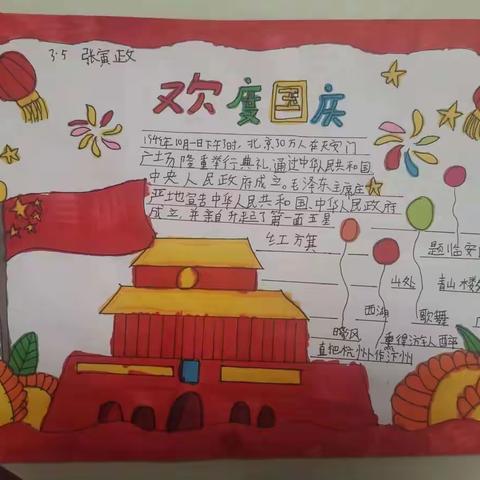 3.5 张寅政
欢度国庆
1949年10月一日下午3时,北京30万人在天安门
广场隆重举行典礼,通过中华人民共和国
中央人民政府成立。毛泽东主席庄
严地宣告中华人民共和国,中华人民政府
成立,并亲自升起了第一面五星
红方旗
题临安
山处 青山楼
西湖 歌舞
暖风 熏得游人醉
直把杭州作汴州